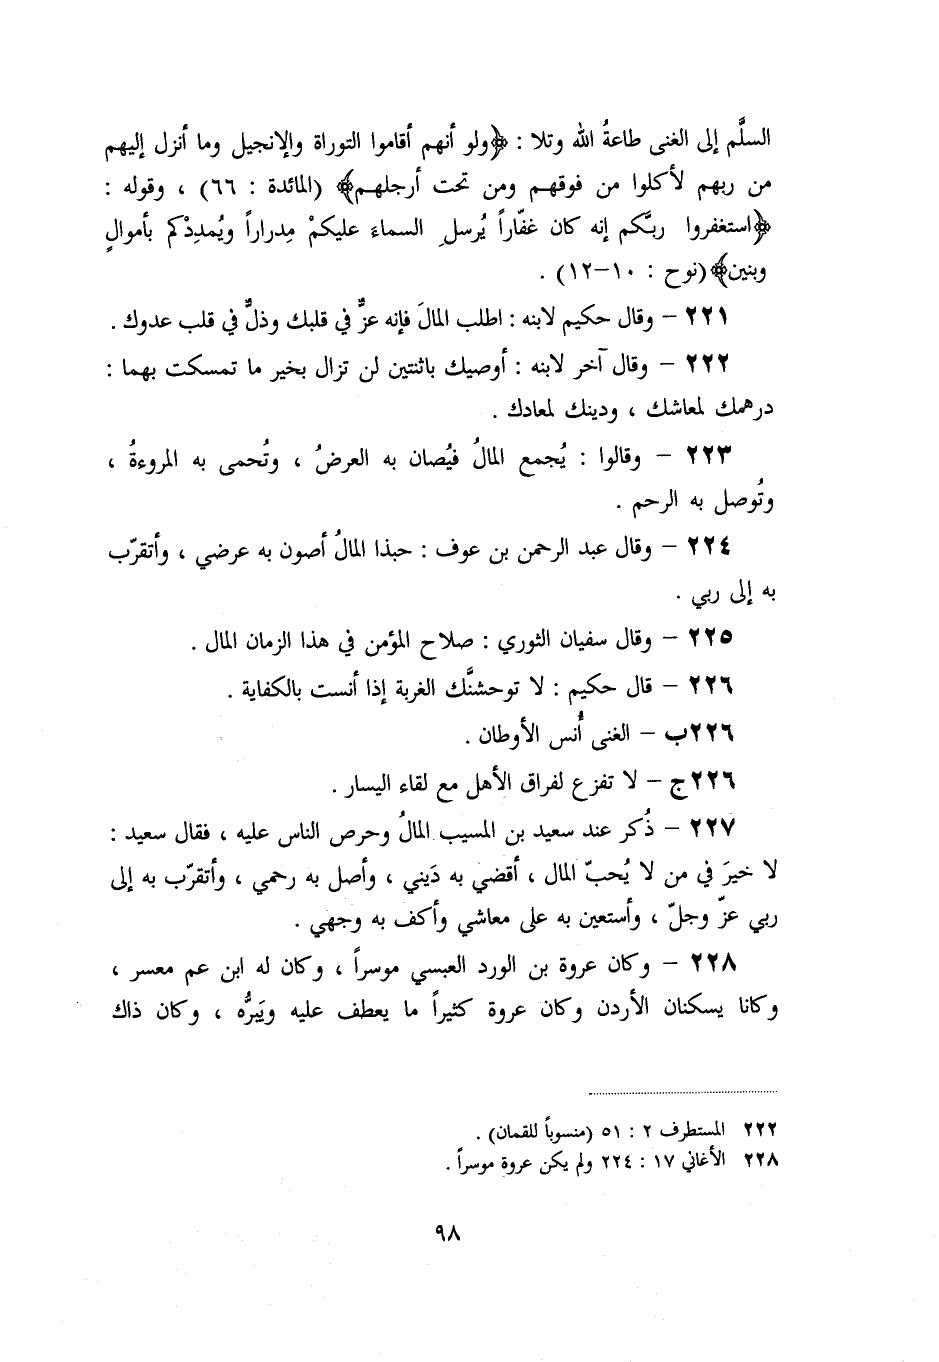 السلَّم إلى الغنى طاعةُ الله وتلا : ﴿ولو أنهم أقاموا التوراة والإنجيل وما أنزل إليهم
من ربهم لأكلوا من فوقهم ومن تحت أرجلهم﴾ (المائدة : ٦٦) ، وقوله :
﴿استغفروا ربَّكم إنه كان غفّاراً يُرسلِ السماءَ عليكمْ مِدراراً ويُمدِدْكم بأموالٍ
وبنين﴾(نوح : ١٠–١٢) .
٢٢١ – وقال حكيم لابنه : اطلب المالَ فإنه عزٌّ في قلبك وذلٌّ في قلب عدوك .
٢٢٢ – وقال آخر لابنه : أوصيك باثنتين لن تزال بخير ما تمسكت بهما :
درهمك لمعاشك ، ودينك لمعادك .
٢٢٣ – وقالوا : يُجمع المالُ فيُصان به العرضُ ، وتُحمى به المروءةُ ،
وتُوصل به الرحم .
٢٢٤ – وقال عبد الرحمن بن عوف : حبذا المالُ أصون به عرضي ، وأتقرّب
به إلى ربي .
٢٢٥ – وقال سفيان الثوري : صلاح المؤمن في هذا الزمان المال .
٢٢٦ – قال حكيم : لا توحشنَّك الغربة إذا أنست بالكفاية .
٢٢٦ب – الغنى أُنس الأوطان .
٢٢٦ج – لا تفزع لفراق الأهل مع لقاء اليسار .
٢٢٧ – ذُكر عند سعيد بن المسيب المالُ وحرص الناس عليه ، فقال سعيد :
لا خيرَ في من لا يُحبّ المال ، أقضي به دَيني ، وأصل به رحمي ، وأتقرّب به إلى
ربي عزّ وجلّ ، وأستعين به على معاشي وأكف به وجهي .
٢٢٨ – وكان عروة بن الورد العبسي موسراً ، وكان له ابن عم معسر ،
وكانا يسكنان الأردن وكان عروة كثيراً ما يعطف عليه ويَبرُّه ، وكان ذاك
٢٢٢ المستطرف ٢ : ٥١ (منسوباً للقمان) .
٢٢٨ الأغاني ١٧ : ٢٢٤ ولم يكن عروة موسراً .
٩٨